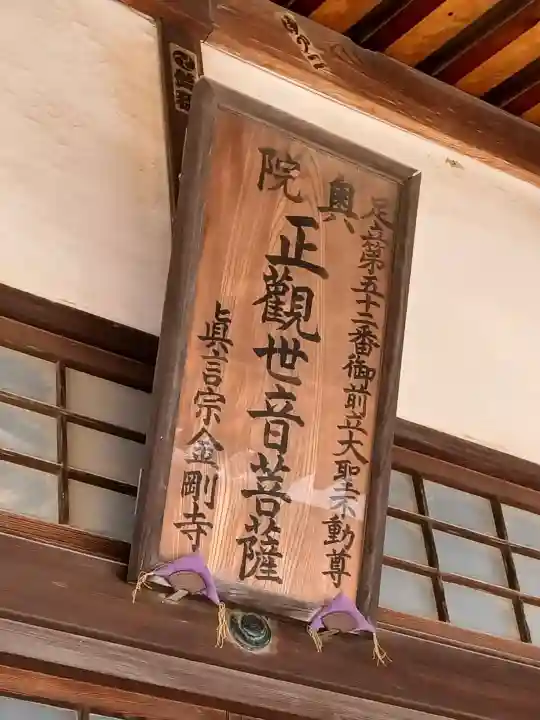 奥院
足立第五十二番御前立大聖不動尊
正觀世音菩薩
眞言宗金剛寺